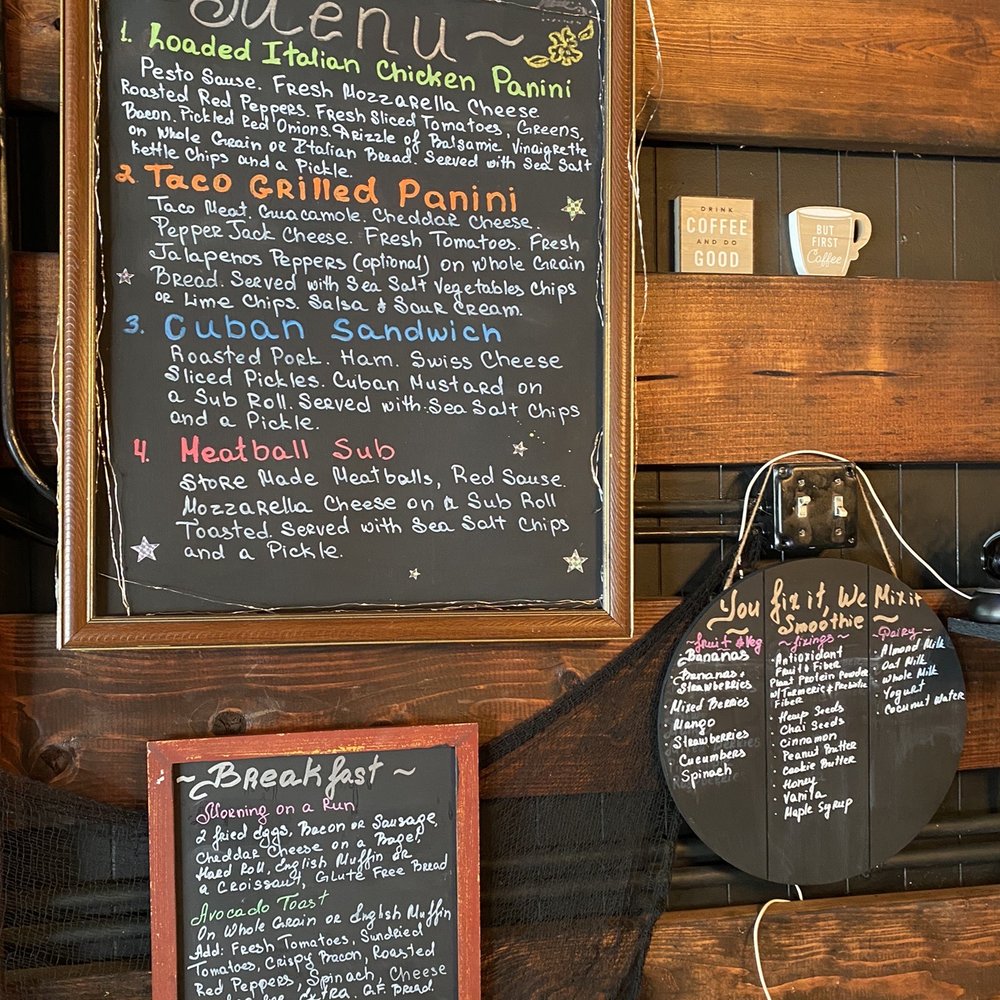 Menu~
1. Loaded Italian Chicken Panini
Pesto Sause. Fresh Mozzarella Cheese
Roasted Red Peppers. Fresh Sliced Tomatoes, Greens,
Bacon. Pickled Red Onions. Drizzle of Balsamic Vinaigrette
on Whole Grain or Italian Bread. Served with Sea Salt
Kettle Chips and a Pickle.
2. Taco Grilled Panini
Taco Meat. Guacamole. Cheddar Cheese.
Pepper Jack Cheese. Fresh Tomatoes. Fresh
Jalapenos Peppers (optional) on Whole Grain
Bread. Served with Sea Salt Vegetables Chips
or Lime Chips. Salsa & Sour Cream.
3. Cuban Sandwich
Roasted Pork. Ham. Swiss Cheese
Sliced Pickles. Cuban Mustard on
a Sub Roll. Served with Sea Salt Chips
and a Pickle.
4. Meatball Sub
Store Made Meatballs, Red Sause.
Mozzarella Cheese on a Sub Roll
Toasted. Served with Sea Salt Chips
and a Pickle.
DRINK
COFFEE
AND DO
GOOD
BUT
FIRST
Coffee
You fix it, We Mix it
~ Smoothie ~
~fruit & Veg
· Bananas
· Bananas &
Strawberries
· Mixed Berries
· Mango
· Strawberries
· Cucumbers
· Spinach
~ fixings ~
· Antioxidant
Fruit & Fiber
Plant Protein Powder
w/Turmeric & Prebiotic
Fiber
· Hemp Seeds
· Chai Seeds
· Cinnamon
· Peanut Butter
· Cookie Butter
· Honey
· Vanila
· Maple Syrup
~ Dairy ~
· Almond Milk
· Oat Milk
· Whole Milk
· Yogurt
· Coconut Water
~ Breakfast ~
Morning on a Run
2 fried eggs, Bacon or Sausage,
Cheddar Cheese on a Bagel,
Hard Roll, English Muffin or
a Croissant, Glute Free Bread
Avocado Toast
On Whole Grain or English Muffin
Add: Fresh Tomatoes, Sundried
Tomatoes, Crispy Bacon, Roasted
Red Peppers, Spinach, Cheese
Extra. G.F. Bread.